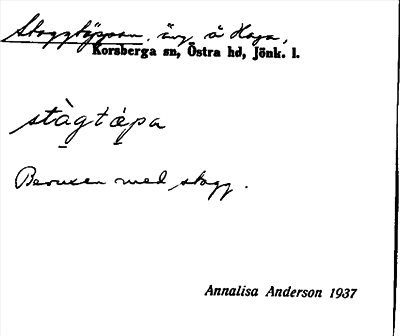 Staggtäppan, äng å Haga,
Korsberga sn, Östra hd, Jönk. l.
stàgtápa
Bevuxen med stagg.
Annalisa Anderson 1937